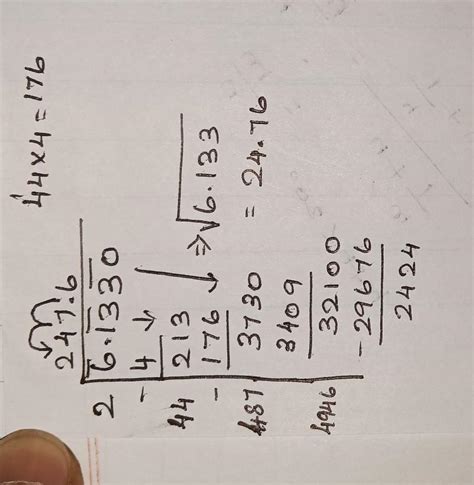 44×4=176
247.6
2 6.1330
- 4
44 213
- 176 ⇒ √6.133
487 3730 = 24.76
3409
4946 32100
-29676
2424